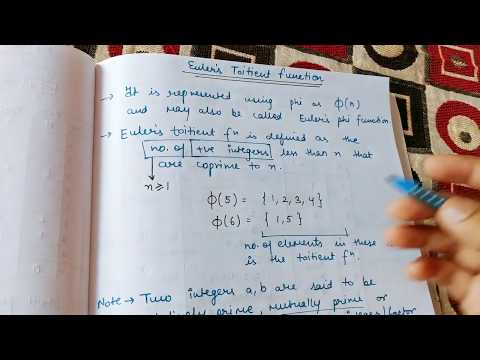 Euler's Toitient function
→ It is represented using phi as Φ(n)
and may also be called Euler's phi function
→ Euler's toitient fⁿ is defined as the
no. of +ve integers less than n that
are coprime to n.
n≥1
Φ(5) = {1,2,3,4}
Φ(6) = {1,5}
no. of elements in these
is the toitient fⁿ.
Note → Two integers a,b are said to be
prime, mutually prime or